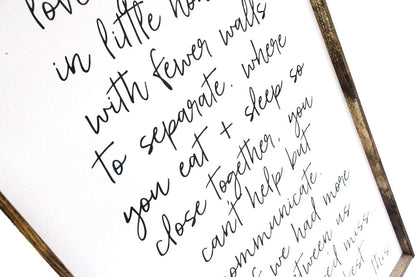 in little
with fewer walls
to separate. where
you eat + sleep so
close together, you
can't help but
communicate.
we had more
between us
miss
this